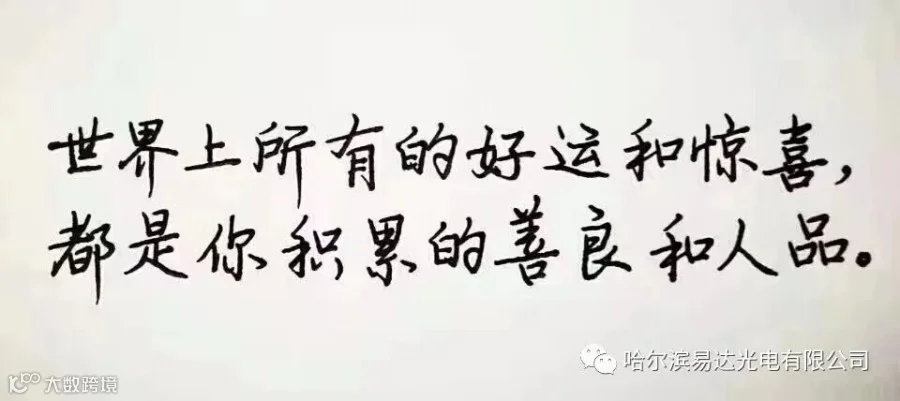 世界上所有的好运和惊喜，
都是你积累的善良和人品。
哈尔滨易达光电有限公司
大数跨境